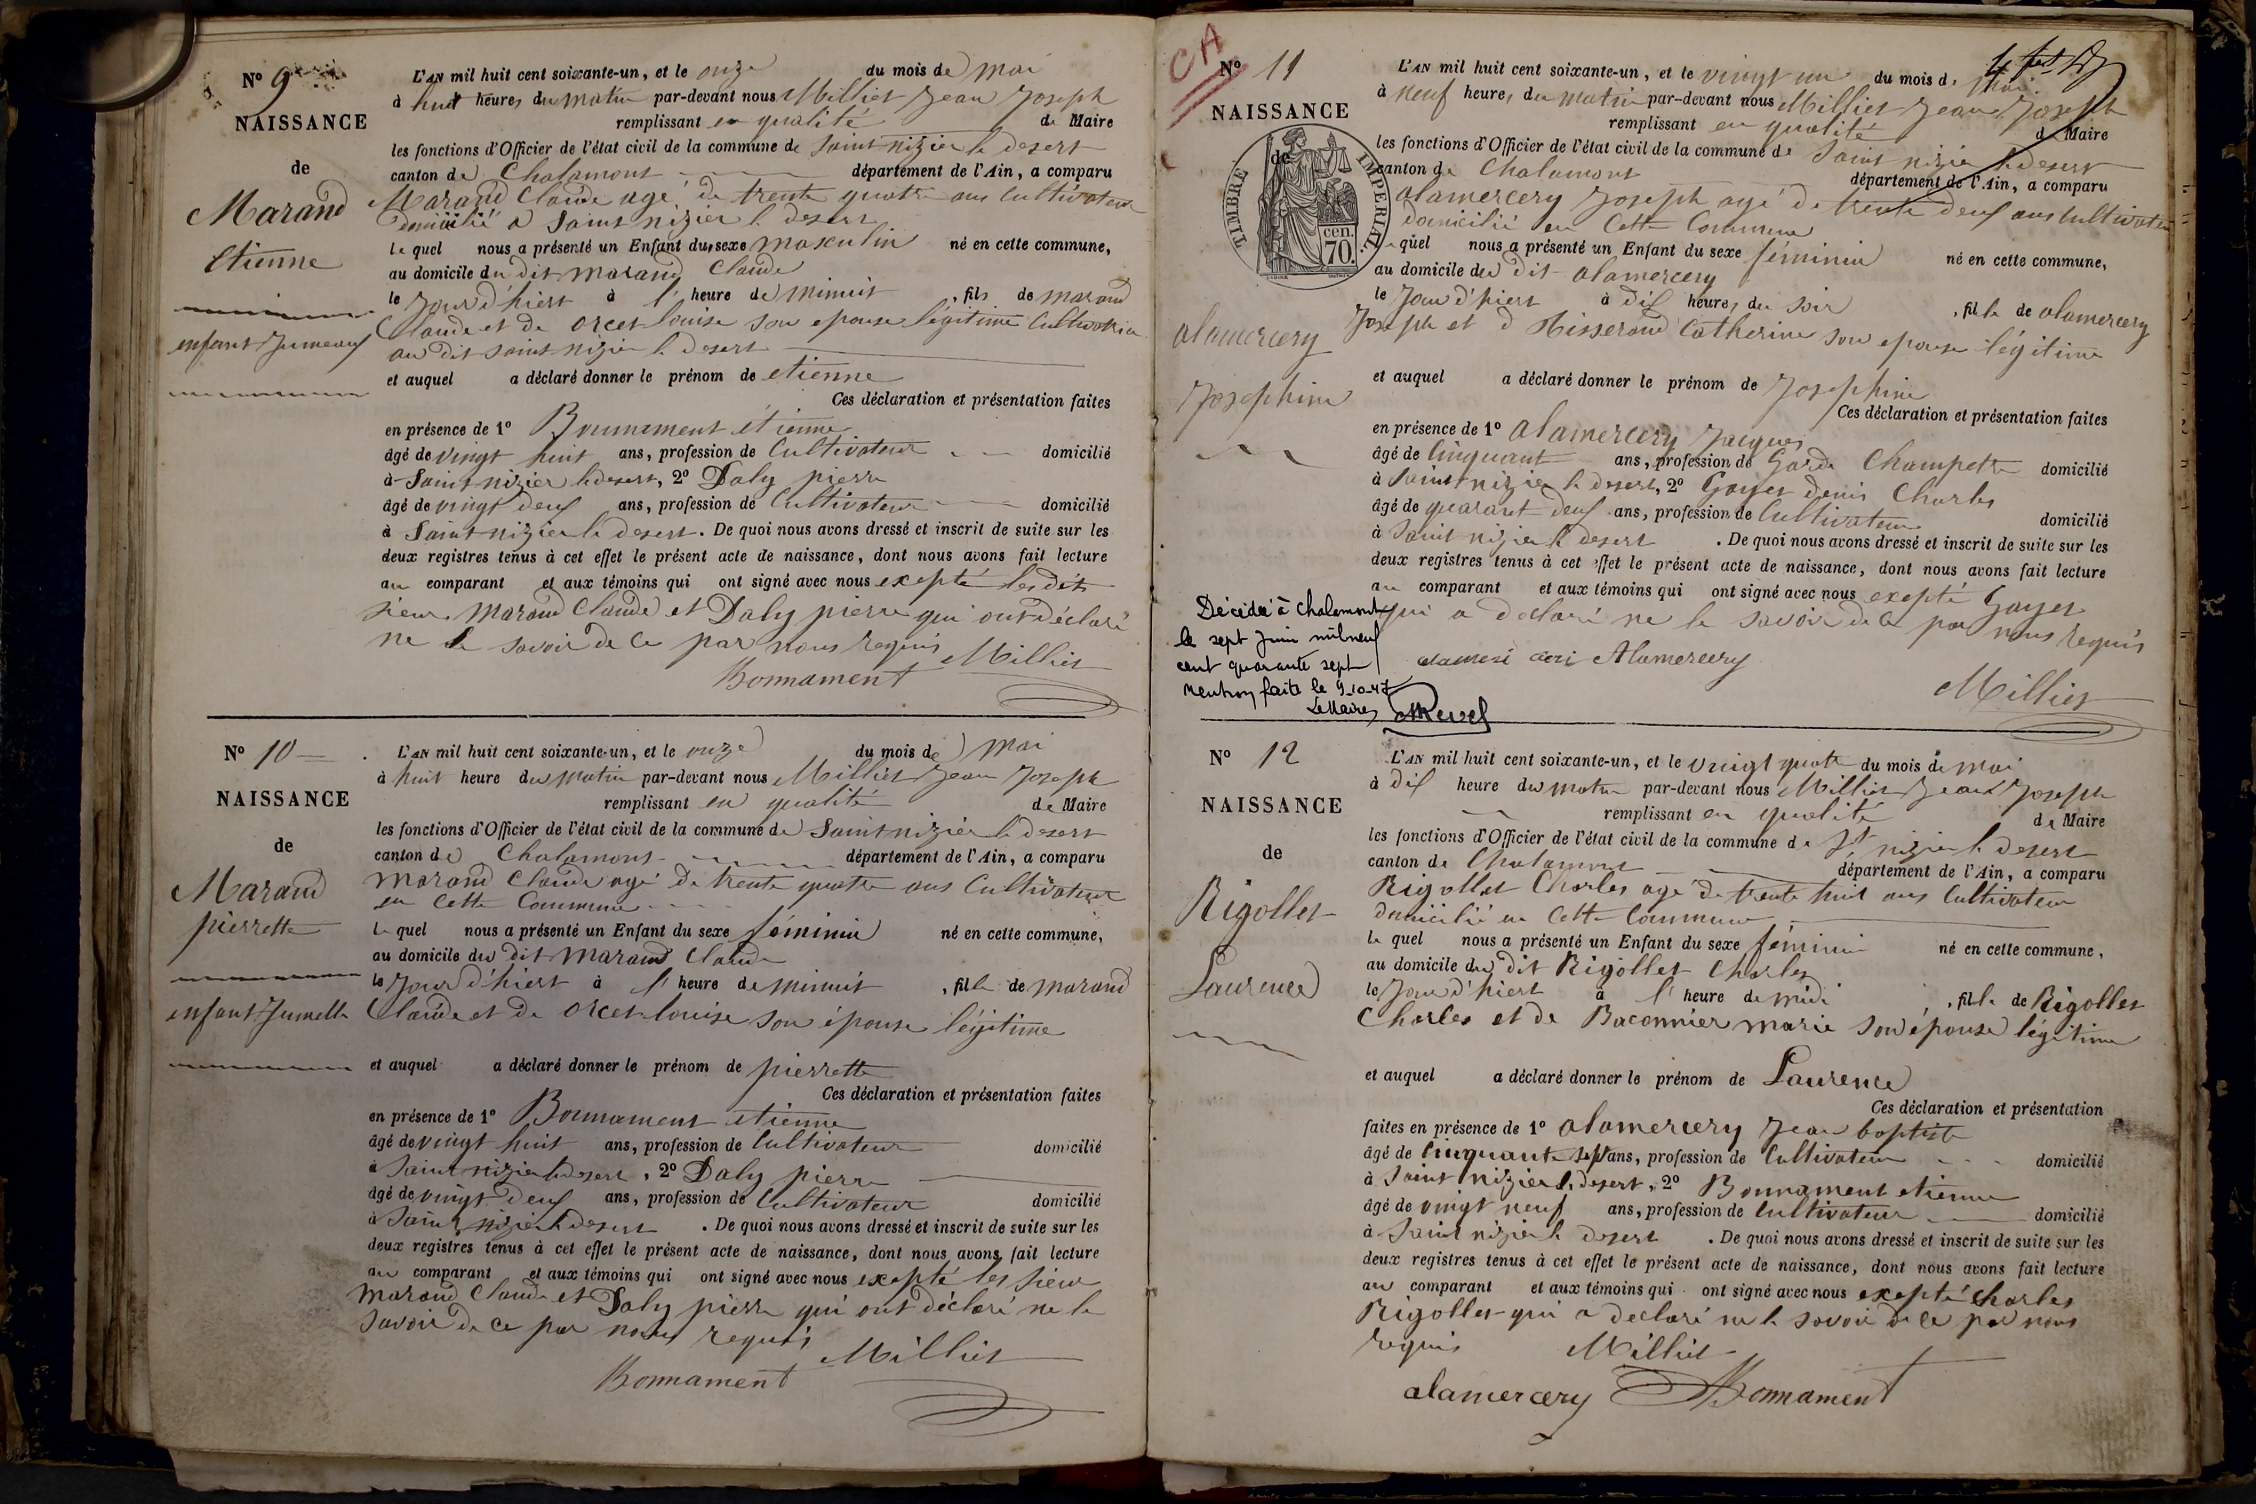 N° 9
NAISSANCE
de
Marand
Etienne
enfant Jumeaux
L'AN mil huit cent soixante-un, et le onze du mois de mai
à huit heures du matin par-devant nous Milliet Jean Joseph
remplissant en qualité de Maire
les fonctions d'Officier de l'état civil de la commune de Saint nizier le desert
canton de Chalamont département de l'Ain, a comparu
Marand Claude agé de trente quatre ans Cultivateur
domicilié a Saint nizier le desert
le quel nous a présenté un Enfant du sexe masculin né en cette commune,
au domicile du dit marand Claude
le jour d'hiert à l' heure de minuit, fils de marand
Claude et de orcet louise son epouse légitime Cultivatrice
au dit saint nizier le desert
et auquel a déclaré donner le prénom de etienne
Ces déclaration et présentation faites
en présence de 1° Bonnament étienne
âgé de vingt huit ans, profession de Cultivateur domicilié
à Saint nizier le desert, 2° Daly pierre
âgé de vingt deux ans, profession de Cultivateur domicilié
à Saint nizier le desert. De quoi nous avons dressé et inscrit de suite sur les
deux registres tenus à cet effet le présent acte de naissance, dont nous avons fait lecture
au comparant et aux témoins qui ont signé avec nous excepté les dits
sieur marand Claude et Daly pierre qui ont déclaré
ne le savoir de ce par nous requis
Bonnament Milliet
N° 10
NAISSANCE
de
Marand
pierrette
enfant Jumelle
L'AN mil huit cent soixante-un, et le onze du mois de mai
à huit heure du matin par-devant nous Milliet Jean Joseph
remplissant en qualité de Maire
les fonctions d'Officier de l'état civil de la commune de Saint nizier le desert
canton de Chalamont département de l'Ain, a comparu
marand Claude agé de trente quatre ans Cultivateur
en cette Commune
le quel nous a présenté un Enfant du sexe féminin né en cette commune,
au domicile du dit marand Claude
le jour d'hiert à l' heure de minuit, fille de marand
Claude et de orcet louise son épouse légitime
et auquel a déclaré donner le prénom de pierrette
Ces déclaration et présentation faites
en présence de 1° Bonnament etienne
âgé de vingt huit ans, profession de Cultivateur domicilié
à Saint nizier le desert, 2° Daly pierre
âgé de vingt deux ans, profession de Cultivateur domicilié
à Saint nizier le desert. De quoi nous avons dressé et inscrit de suite sur les
deux registres tenus à cet effet le présent acte de naissance, dont nous avons fait lecture
au comparant et aux témoins qui ont signé avec nous excepté les sieur
marand Claude et Daly pierre qui ont déclaré ne le
savoir de ce par nous requis
Bonnament Milliet
CA
N° 11
NAISSANCE
de
TIMBRE IMPERIAL
70 cen.
alamercery
Josephine
L'AN mil huit cent soixante-un, et le vingt un du mois de mai
à neuf heures du matin par-devant nous Milliet Jean Joseph
remplissant en qualité de Maire
les fonctions d'Officier de l'état civil de la commune de Saint nizier le desert
canton de Chalamont département de l'Ain, a comparu
alamercery Joseph agé de trente deux ans Cultivateur
domicilié en Cette Commune
le quel nous a présenté un Enfant du sexe féminin né en cette commune,
au domicile du dit alamercery
le jour d'hiert à dix heures du soir, fille de alamercery
Joseph et d Tisserand Catherine son epouse légitime
et auquel a déclaré donner le prénom de Josephine
Ces déclaration et présentation faites
en présence de 1° alamercery Jacques
âgé de Cinquant ans, profession de Garde Champetre domicilié
à Saint nizier le desert, 2° Goyet denis Charles
âgé de quarant deux ans, profession de Cultivateur domicilié
à Saint nizier le desert. De quoi nous avons dressé et inscrit de suite sur les
deux registres tenus à cet effet le présent acte de naissance, dont nous avons fait lecture
au comparant et aux témoins qui ont signé avec nous excepté Goyet
qui a déclaré ne le savoir de ce par nous requis
Alamercery
Milliet
Décédée à Chalamont
le sept Juin mil neuf
cent quarante sept
Mention faite le 9-10-47
Le Maire,
N° 12
NAISSANCE
de
Rigollet
Laurence
L'AN mil huit cent soixante-un, et le vingt quatre du mois de mai
à dix heure du matin par-devant nous Milliet Jean Joseph
remplissant en qualité de Maire
les fonctions d'Officier de l'état civil de la commune de St nizier le desert
canton de Chalamont département de l'Ain, a comparu
Rigollet Charles agé de trente huit ans Cultivateur
domicilié en Cette Commune
le quel nous a présenté un Enfant du sexe féminin né en cette commune,
au domicile du dit Rigollet Charles
le jour d'hiert à l' heure de midi, fille de Rigollet
Charles et de Baconnier marie son épouse légitime
et auquel a déclaré donner le prénom de Laurence
Ces déclaration et présentation
faites en présence de 1° alamercery Jean baptiste
âgé de cinquante sept ans, profession de Cultivateur domicilié
à Saint nizier le desert, 2° Bonnament etienne
âgé de vingt neuf ans, profession de Cultivateur domicilié
à Saint nizier le desert. De quoi nous avons dressé et inscrit de suite sur les
deux registres tenus à cet effet le présent acte de naissance, dont nous avons fait lecture
au comparant et aux témoins qui ont signé avec nous excepté Charles
Rigollet qui a déclaré ne le savoir de ce par nous
requis Milliet
alamercery Bonnament